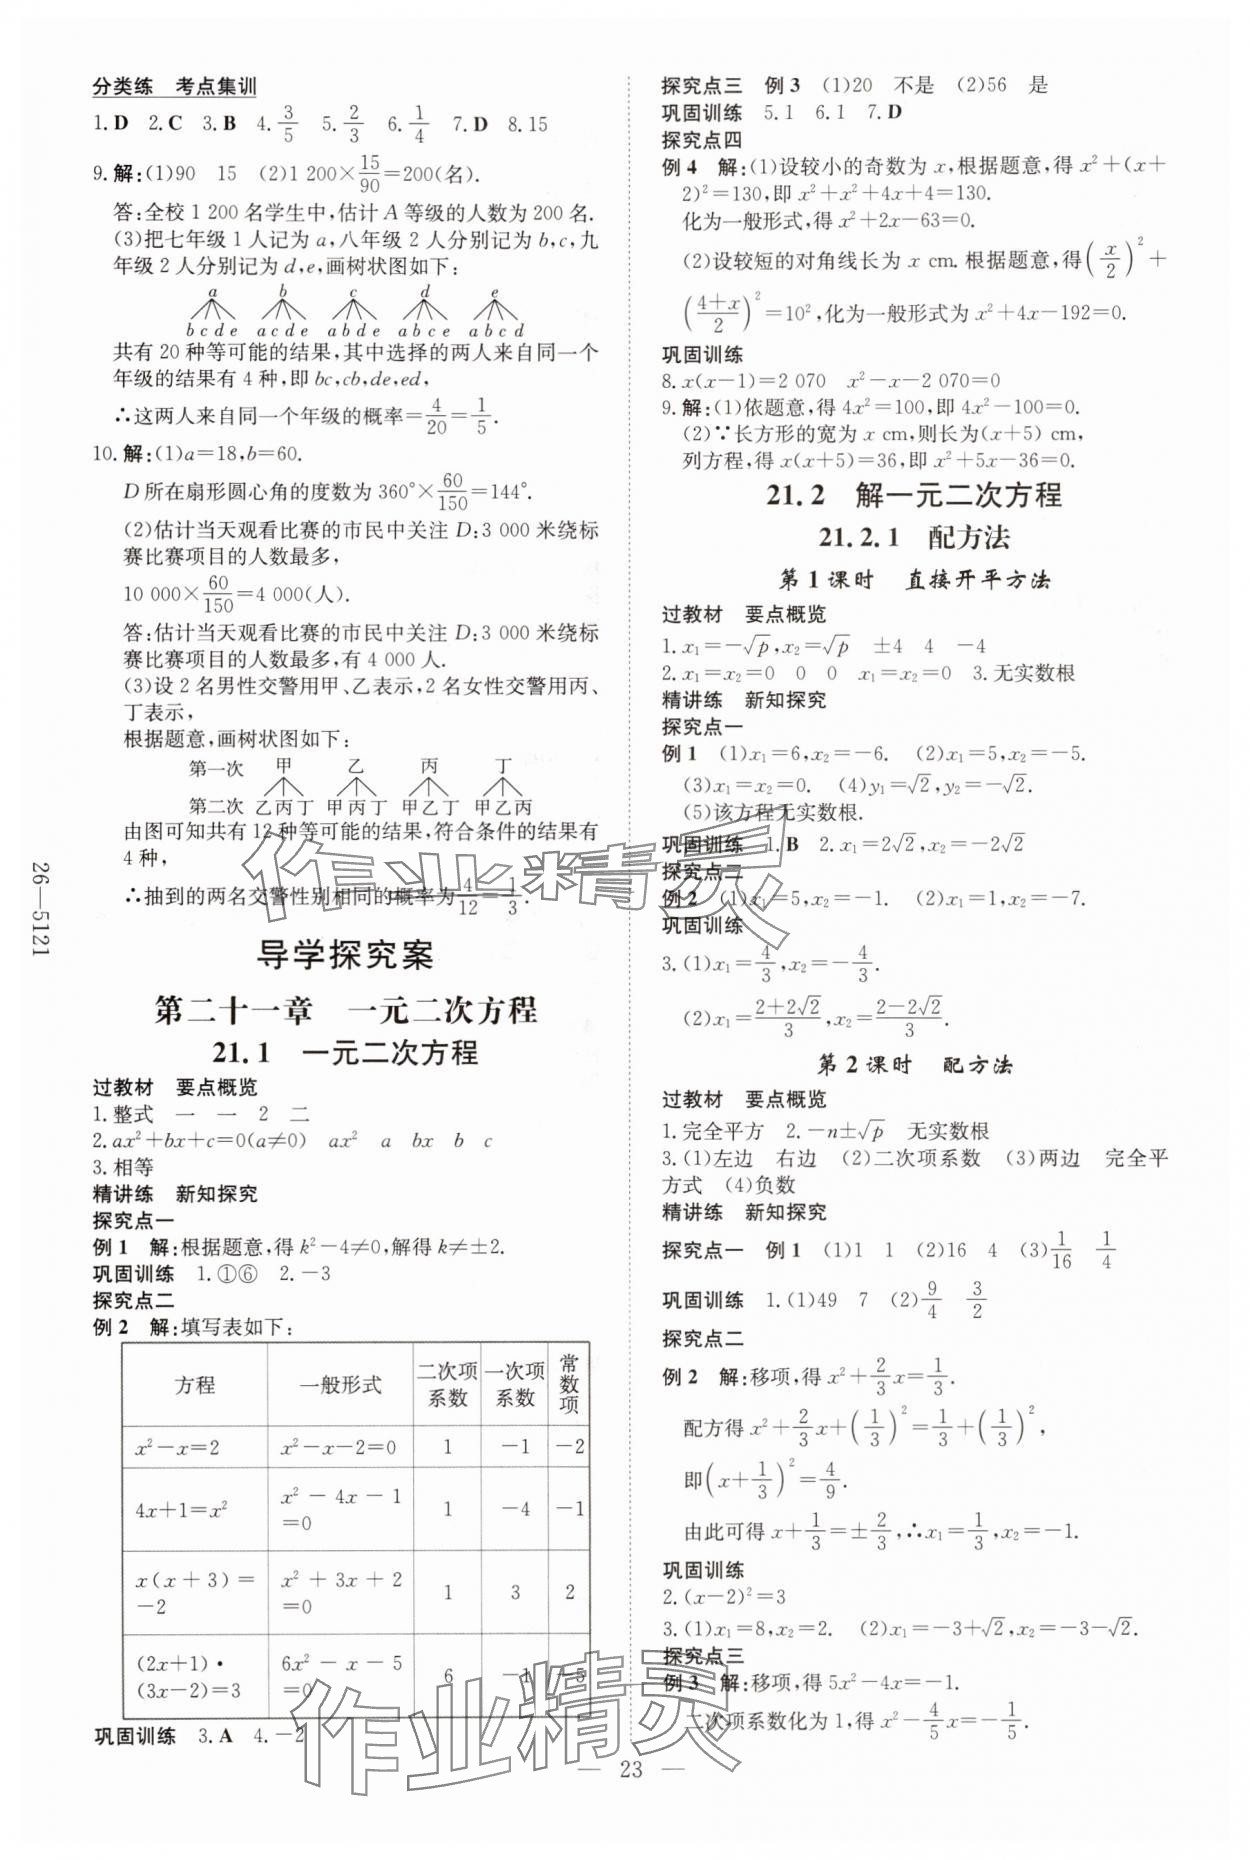 分类练　考点集训
1.D　2.C　3.B　4.3/5　5.2/3　6.1/4　7.D　8.15
9.解:(1)90　15　(2)1 200×15/90=200(名).
答:全校1 200名学生中,估计A等级的人数为200名.
(3)把七年级1人记为a,八年级2人分别记为b,c,九
年级2人分别记为d,e,画树状图如下:
a　b　c　d　e
b c d e　a c d e　a b d e　a b c e　a b c d
共有20种等可能的结果,其中选择的两人来自同一个
年级的结果有4种,即bc,cb,de,ed,
∴这两人来自同一个年级的概率=4/20=1/5.
10.解:(1)a=18,b=60.
D所在扇形圆心角的度数为360°×60/150=144°.
(2)估计当天观看比赛的市民中关注D:3 000米绕标
赛比赛项目的人数最多,
10 000×60/150=4 000(人).
答:估计当天观看比赛的市民中关注D:3 000米绕标
赛比赛项目的人数最多,有4 000人.
(3)设2名男性交警用甲、乙表示,2名女性交警用丙、
丁表示,
根据题意,画树状图如下:
第一次　甲　乙　丙　丁
第二次　乙丙丁　甲丙丁　甲乙丁　甲乙丙
由图可知共有12种等可能的结果,符合条件的结果有
4种,
∴抽到的两名交警性别相同的概率为4/12=1/3.
导学探究案
第二十一章　一元二次方程
21.1　一元二次方程
过教材　要点概览
1.整式　一　一　2　二
2.ax²+bx+c=0(a≠0)　ax²　a　bx　b　c
3.相等
精讲练　新知探究
探究点一
例1　解:根据题意,得k²-4≠0,解得k≠±2.
巩固训练　1.①⑥　2.-3
探究点二
例2　解:填写表如下:
方程　一般形式　二次项系数　一次项系数　常数项
x²-x=2　x²-x-2=0　1　-1　-2
4x+1=x²　x²-4x-1=0　1　-4　-1
x(x+3)=-2　x²+3x+2=0　1　3　2
(2x+1)·(3x-2)=3　6x²-x-5=0　6　-1　-5
巩固训练　3.A　4.-2
探究点三　例3　(1)20　不是　(2)56　是
巩固训练　5.1　6.1　7.D
探究点四
例4　解:(1)设较小的奇数为x,根据题意,得x²+(x+
2)²=130,即x²+x²+4x+4=130.
化为一般形式,得x²+2x-63=0.
(2)设较短的对角线长为x cm.根据题意,得(x/2)²+
((4+x)/2)²=10²,化为一般形式为x²+4x-192=0.
巩固训练
8.x(x-1)=2 070　x²-x-2 070=0
9.解:(1)依题意,得4x²=100,即4x²-100=0.
(2)∵长方形的宽为x cm,则长为(x+5) cm,
列方程,得x(x+5)=36,即x²+5x-36=0.
21.2　解一元二次方程
21.2.1　配方法
第1课时　直接开平方法
过教材　要点概览
1.x₁=-√p,x₂=√p　±4　4　-4
2.x₁=x₂=0　0　0　x₁=x₂=0　3.无实数根
精讲练　新知探究
探究点一
例1　(1)x₁=6,x₂=-6.　(2)x₁=5,x₂=-5.
(3)x₁=x₂=0.　(4)y₁=√2,y₂=-√2.
(5)该方程无实数根.
巩固训练　1.B　2.x₁=2√2,x₂=-2√2
探究点二
例2　(1)x₁=5,x₂=-1.　(2)x₁=1,x₂=-7.
巩固训练
3.(1)x₁=4/3,x₂=-4/3.
(2)x₁=(2+2√2)/3,x₂=(2-2√2)/3.
第2课时　配方法
过教材　要点概览
1.完全平方　2.-n±√p　无实数根
3.(1)左边　右边　(2)二次项系数　(3)两边　完全平
方式　(4)负数
精讲练　新知探究
探究点一　例1　(1)1　1　(2)16　4　(3)1/16　1/4
巩固训练　1.(1)49　7　(2)9/4　3/2
探究点二
例2　解:移项,得x²+2/3x=1/3.
配方得x²+2/3x+(1/3)²=1/3+(1/3)²,
即(x+1/3)²=4/9.
由此可得x+1/3=±2/3,∴x₁=1/3,x₂=-1.
巩固训练
2.(x-2)²=3
3.(1)x₁=8,x₂=2.　(2)x₁=-3+√2,x₂=-3-√2.
探究点三
例3　解:移项,得5x²-4x=-1.
二次项系数化为1,得x²-4/5x=-1/5.
— 23 —
26—5121
作业精灵
作业精灵